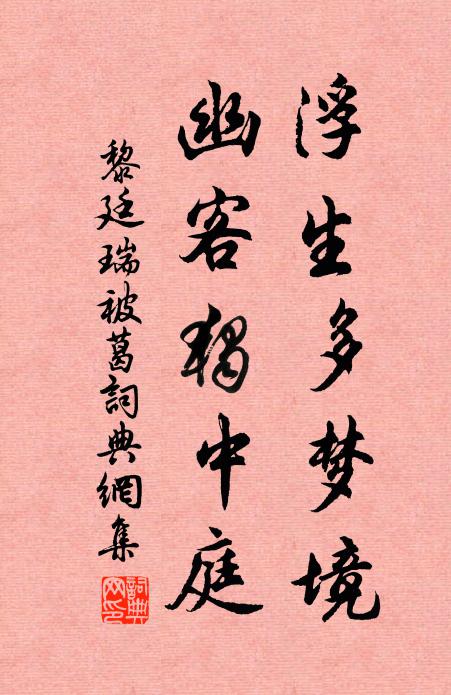 浮生多梦境
幽客獨中庭
黎廷瑞被葛詞典網集
詞典网印